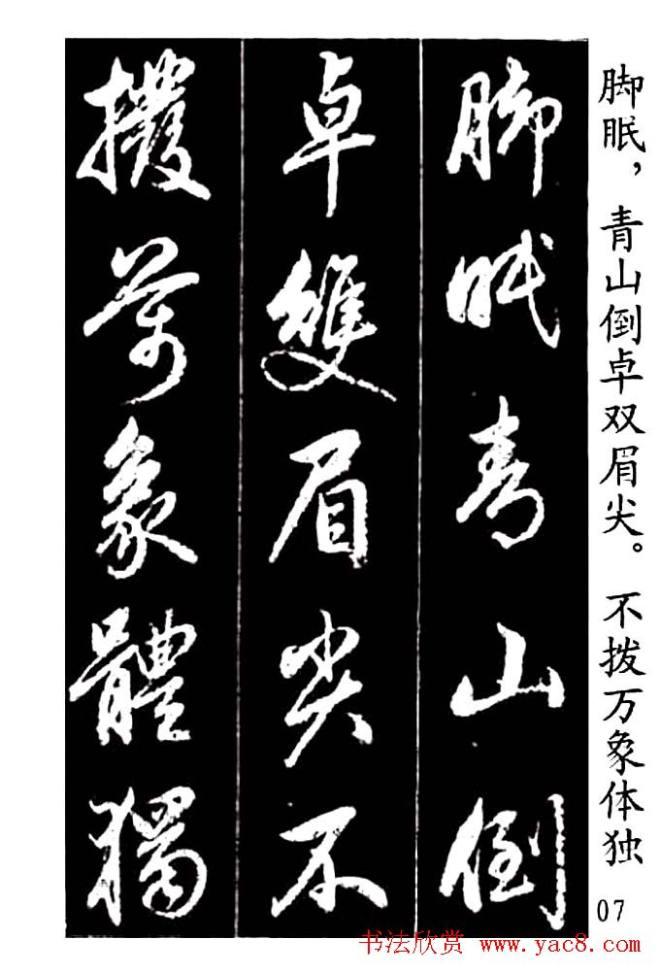 脚眠，青山倒卓双眉尖。不拨万象体独
脚眠青山倒
卓雙眉尖不
撥萬象體獨
07
书法欣赏 www.yac8.com